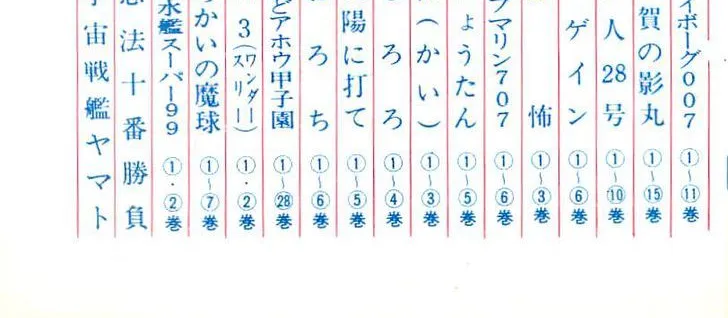 イボーグ007 ①〜⑪巻
賀の影丸 ①〜⑮巻
人28号 ①〜⑩巻
ゲイン ①〜⑥巻
怖 ①〜③巻
ブマリン707 ①〜⑥巻
ょうたん ①〜⑤巻
(かい) ①〜③巻
ろろ ①〜④巻
陽に打て ①〜⑤巻
ろち ①〜⑥巻
どアホウ甲子園 ①〜㉘巻
3(ワンダースリー) ①・②巻
かいの魔球 ①〜⑦巻
水艦スーパー99 ①・②巻
忍法十番勝負
宇宙戦艦ヤマト